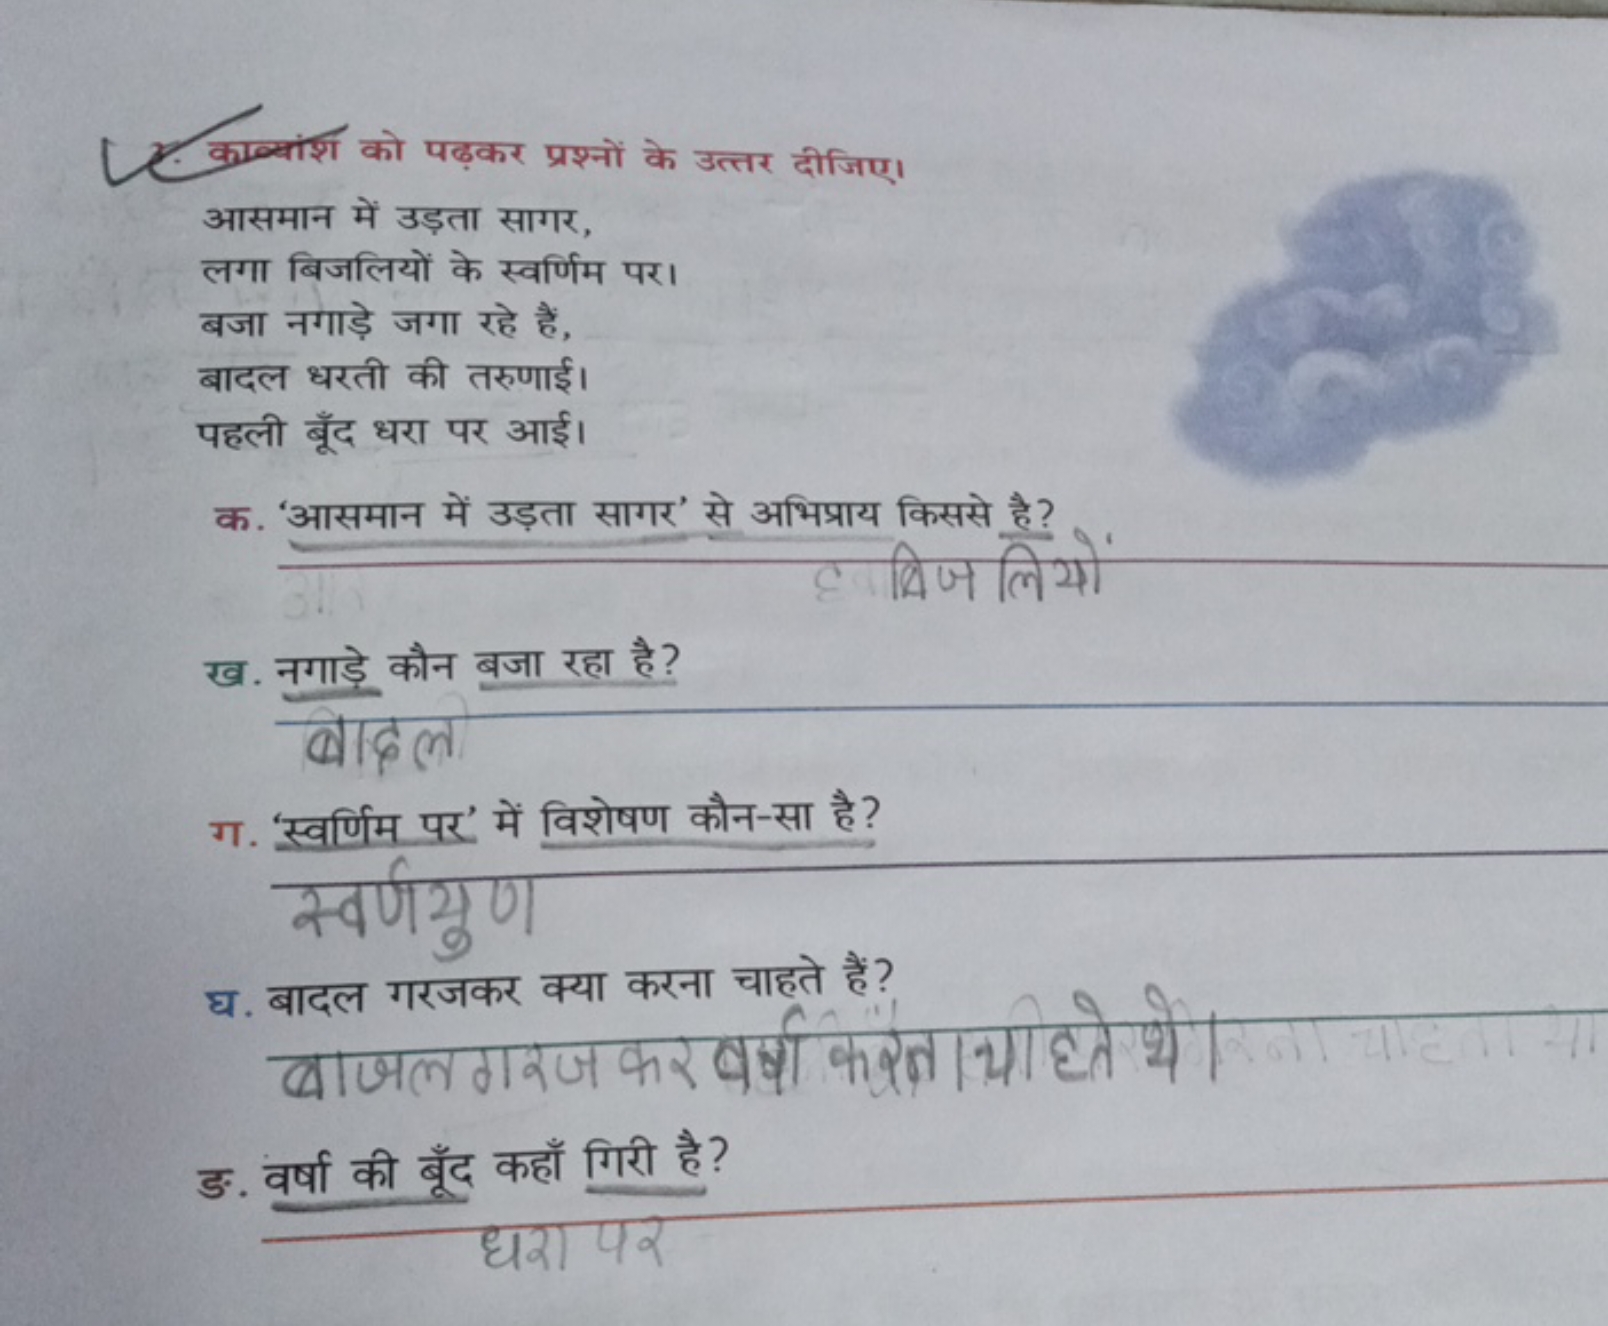 काव्यांश को पढ़कर प्रश्नों के उत्तर दीजिए।
आसमान में उड़ता सागर,
लगा बिजलियों के स्वर्णिम पर।
बजा नगाड़े जगा रहे हैं,
बादल धरती की तरुणाई।
पहली बूँद धरा पर आई।
क. 'आसमान में उड़ता सागर' से अभिप्राय किससे है?
बिजलियों
ख. नगाड़े कौन बजा रहा है?
बादल
ग. 'स्वर्णिम पर' में विशेषण कौन-सा है?
स्वर्णयुण
घ. बादल गरजकर क्या करना चाहते हैं?
बाजल गरज कर बर्षा करना चाहते थे।
ङ. वर्षा की बूँद कहाँ गिरी है?
धरा पर